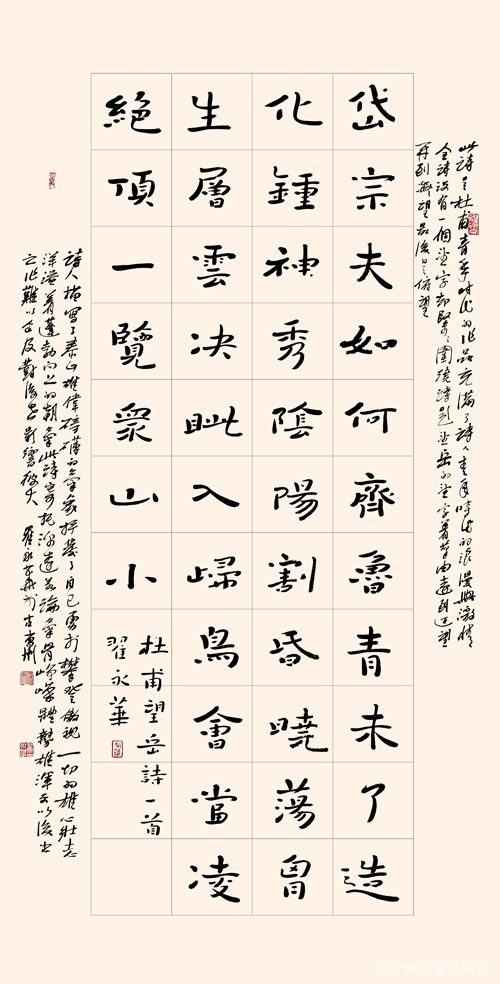 此詩是杜甫青年時代的作品充滿了詩人青年時代的浪漫與激情
全詩沒有一個望字却緊緊圍繞詩題望岳的望字著筆由遠到近望
再到凝望最後是俯望
岱宗夫如何齊魯青未了造
化鍾神秀陰陽割昏曉蕩胷
生層雲决眦入歸鳥會當凌
絕頂一覽眾山小
杜甫望岳詩一首
翟永華
詩人描寫了泰山雄偉磅礴的氣象抒發了自己勇於攀登傲視一切的雄心壯志
洋溢着蓬勃向上的朝氣此詩寄托深遠 氣骨崢嶸體勢雄渾 以後出
之作難以企及 翟永華 於古